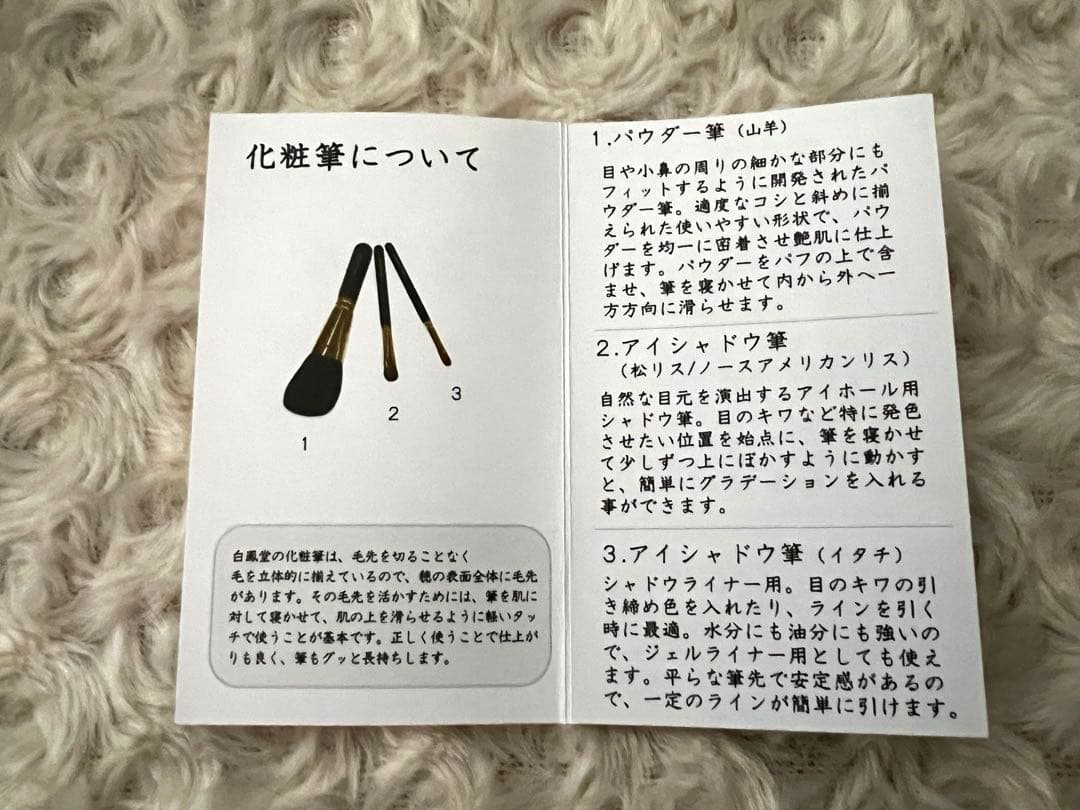 化粧筆について
1
2
3
白鳳堂の化粧筆は、毛先を切ることなく
毛を立体的に揃えているので、穂の表面全体に毛先
があります。その毛先を活かすためには、筆を肌に
対して寝かせて、肌の上を滑らせるように軽いタッ
チで使うことが基本です。正しく使うことで仕上が
りも良く、筆もグッと長持ちします。
1.パウダー筆（山羊）
目や小鼻の周りの細かな部分にも
フィットするように開発されたパ
ウダー筆。適度なコシと斜めに揃
えられた使いやすい形状で、パウ
ダーを均一に密着させ艶肌に仕上
げます。パウダーをパフの上で含
ませ、筆を寝かせて内から外へ一
方方向に滑らせます。
2.アイシャドウ筆
（松リス/ノースアメリカンリス）
自然な目元を演出するアイホール用
シャドウ筆。目のキワなど特に発色
させたい位置を始点に、筆を寝かせ
て少しずつ上にぼかすように動かす
と、簡単にグラデーションを入れる
事ができます。
3.アイシャドウ筆（イタチ）
シャドウライナー用。目のキワの引
き締め色を入れたり、ラインを引く
時に最適。水分にも油分にも強いの
で、ジェルライナー用としても使え
ます。平らな筆先で安定感があるの
で、一定のラインが簡単に引けます。